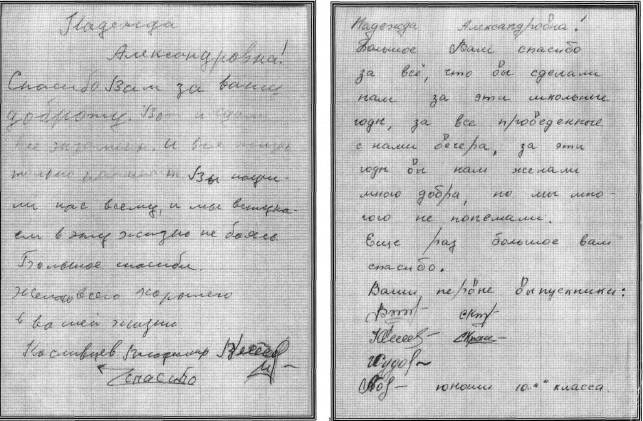 Надежда
Александровна!
Спасибо Вам за вашу
доброту. Вот и сдали
все экзамены. И вся жизнь
только начинает Вы научи-
ли нас всему, и мы вступа-
ем в эту жизнь не боясь
Большое спасибо.
Желаю всего хорошего
в вашей жизни
Владимир
Спасибо
Надежда Александровна!
Большое Вам спасибо
за всё, что вы сделали
нам за эти школьные
годы, за все проведенные
с нами вечера, за эти
годы вы нам желали
много добра, но мы мно-
гого не понемали.
Еще раз большое вам
спасибо.
Ваши первые выпускники:
юноши 10 класса.